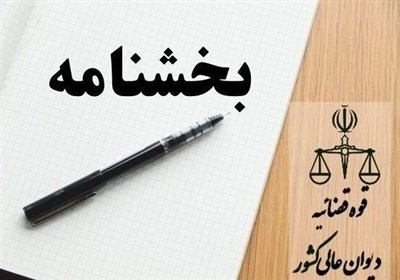 بخشنامه
قوه قضائیه
دیوان عالی کشور